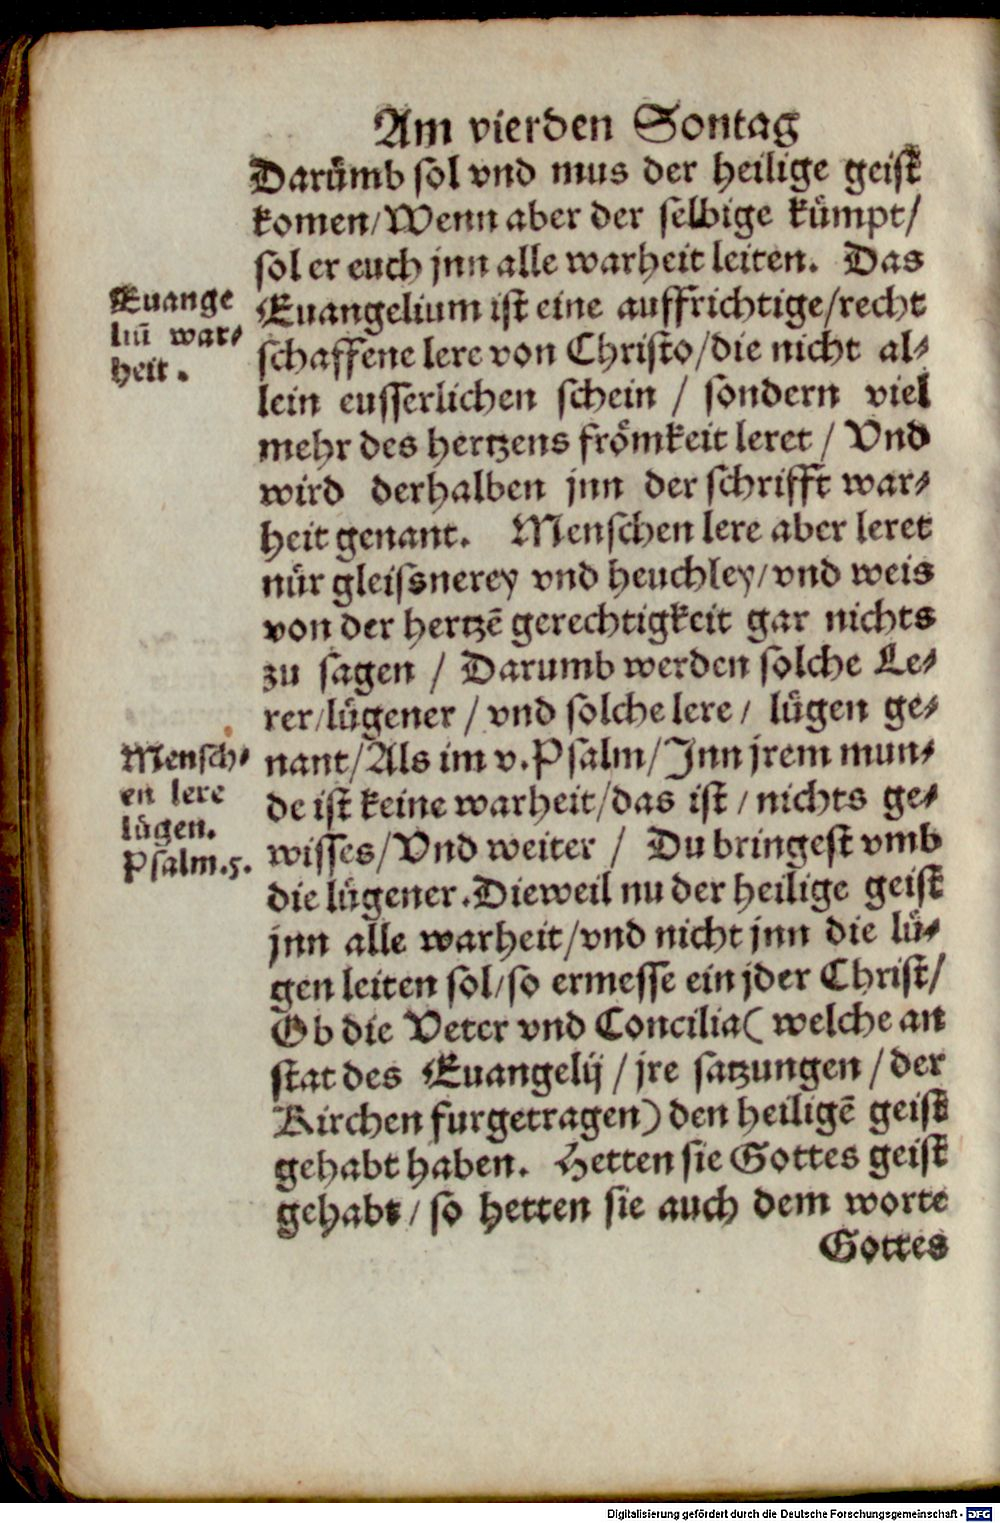 Am vierden Sontag
Darümb sol vnd mus der heilige geist
komen/Wenn aber der selbige kümpt/
sol er euch jnn alle warheit leiten. Das
Euangelium ist eine auffrichtige/recht
schaffene lere von Christo/die nicht al-
lein eusserlichen schein / sondern viel
mehr des hertzens frömkeit leret / Vnd
wird derhalben jnn der schrifft war-
heit genant. Menschen lere aber leret
nür gleissnerey vnd heuchley/vnd weis
von der hertzē gerechtigkeit gar nichts
zu sagen / Darumb werden solche Le-
rer/lügener / vnd solche lere / lügen ge-
nant/Als im v.Psalm/Jnn jrem mun-
de ist keine warheit/das ist / nichts ge-
wisses/Vnd weiter / Du bringest vmb
die lügener.Dieweil nu der heilige geist
jnn alle warheit/vnd nicht jnn die lü-
gen leiten sol/so ermesse ein jder Christ/
Ob die Veter vnd Concilia( welche an
stat des Euangelij / jre satzungen / der
Kirchen furgetragen) den heiligē geist
gehabt haben. Hetten sie Gottes geist
gehabt / so hetten sie auch dem worte
Gottes
Euange
liū war-
heit.
Mensch-
en lere
lügen.
Psalm.5.
Digitalisierung gefördert durch die Deutsche Forschungsgemeinschaft - DFG